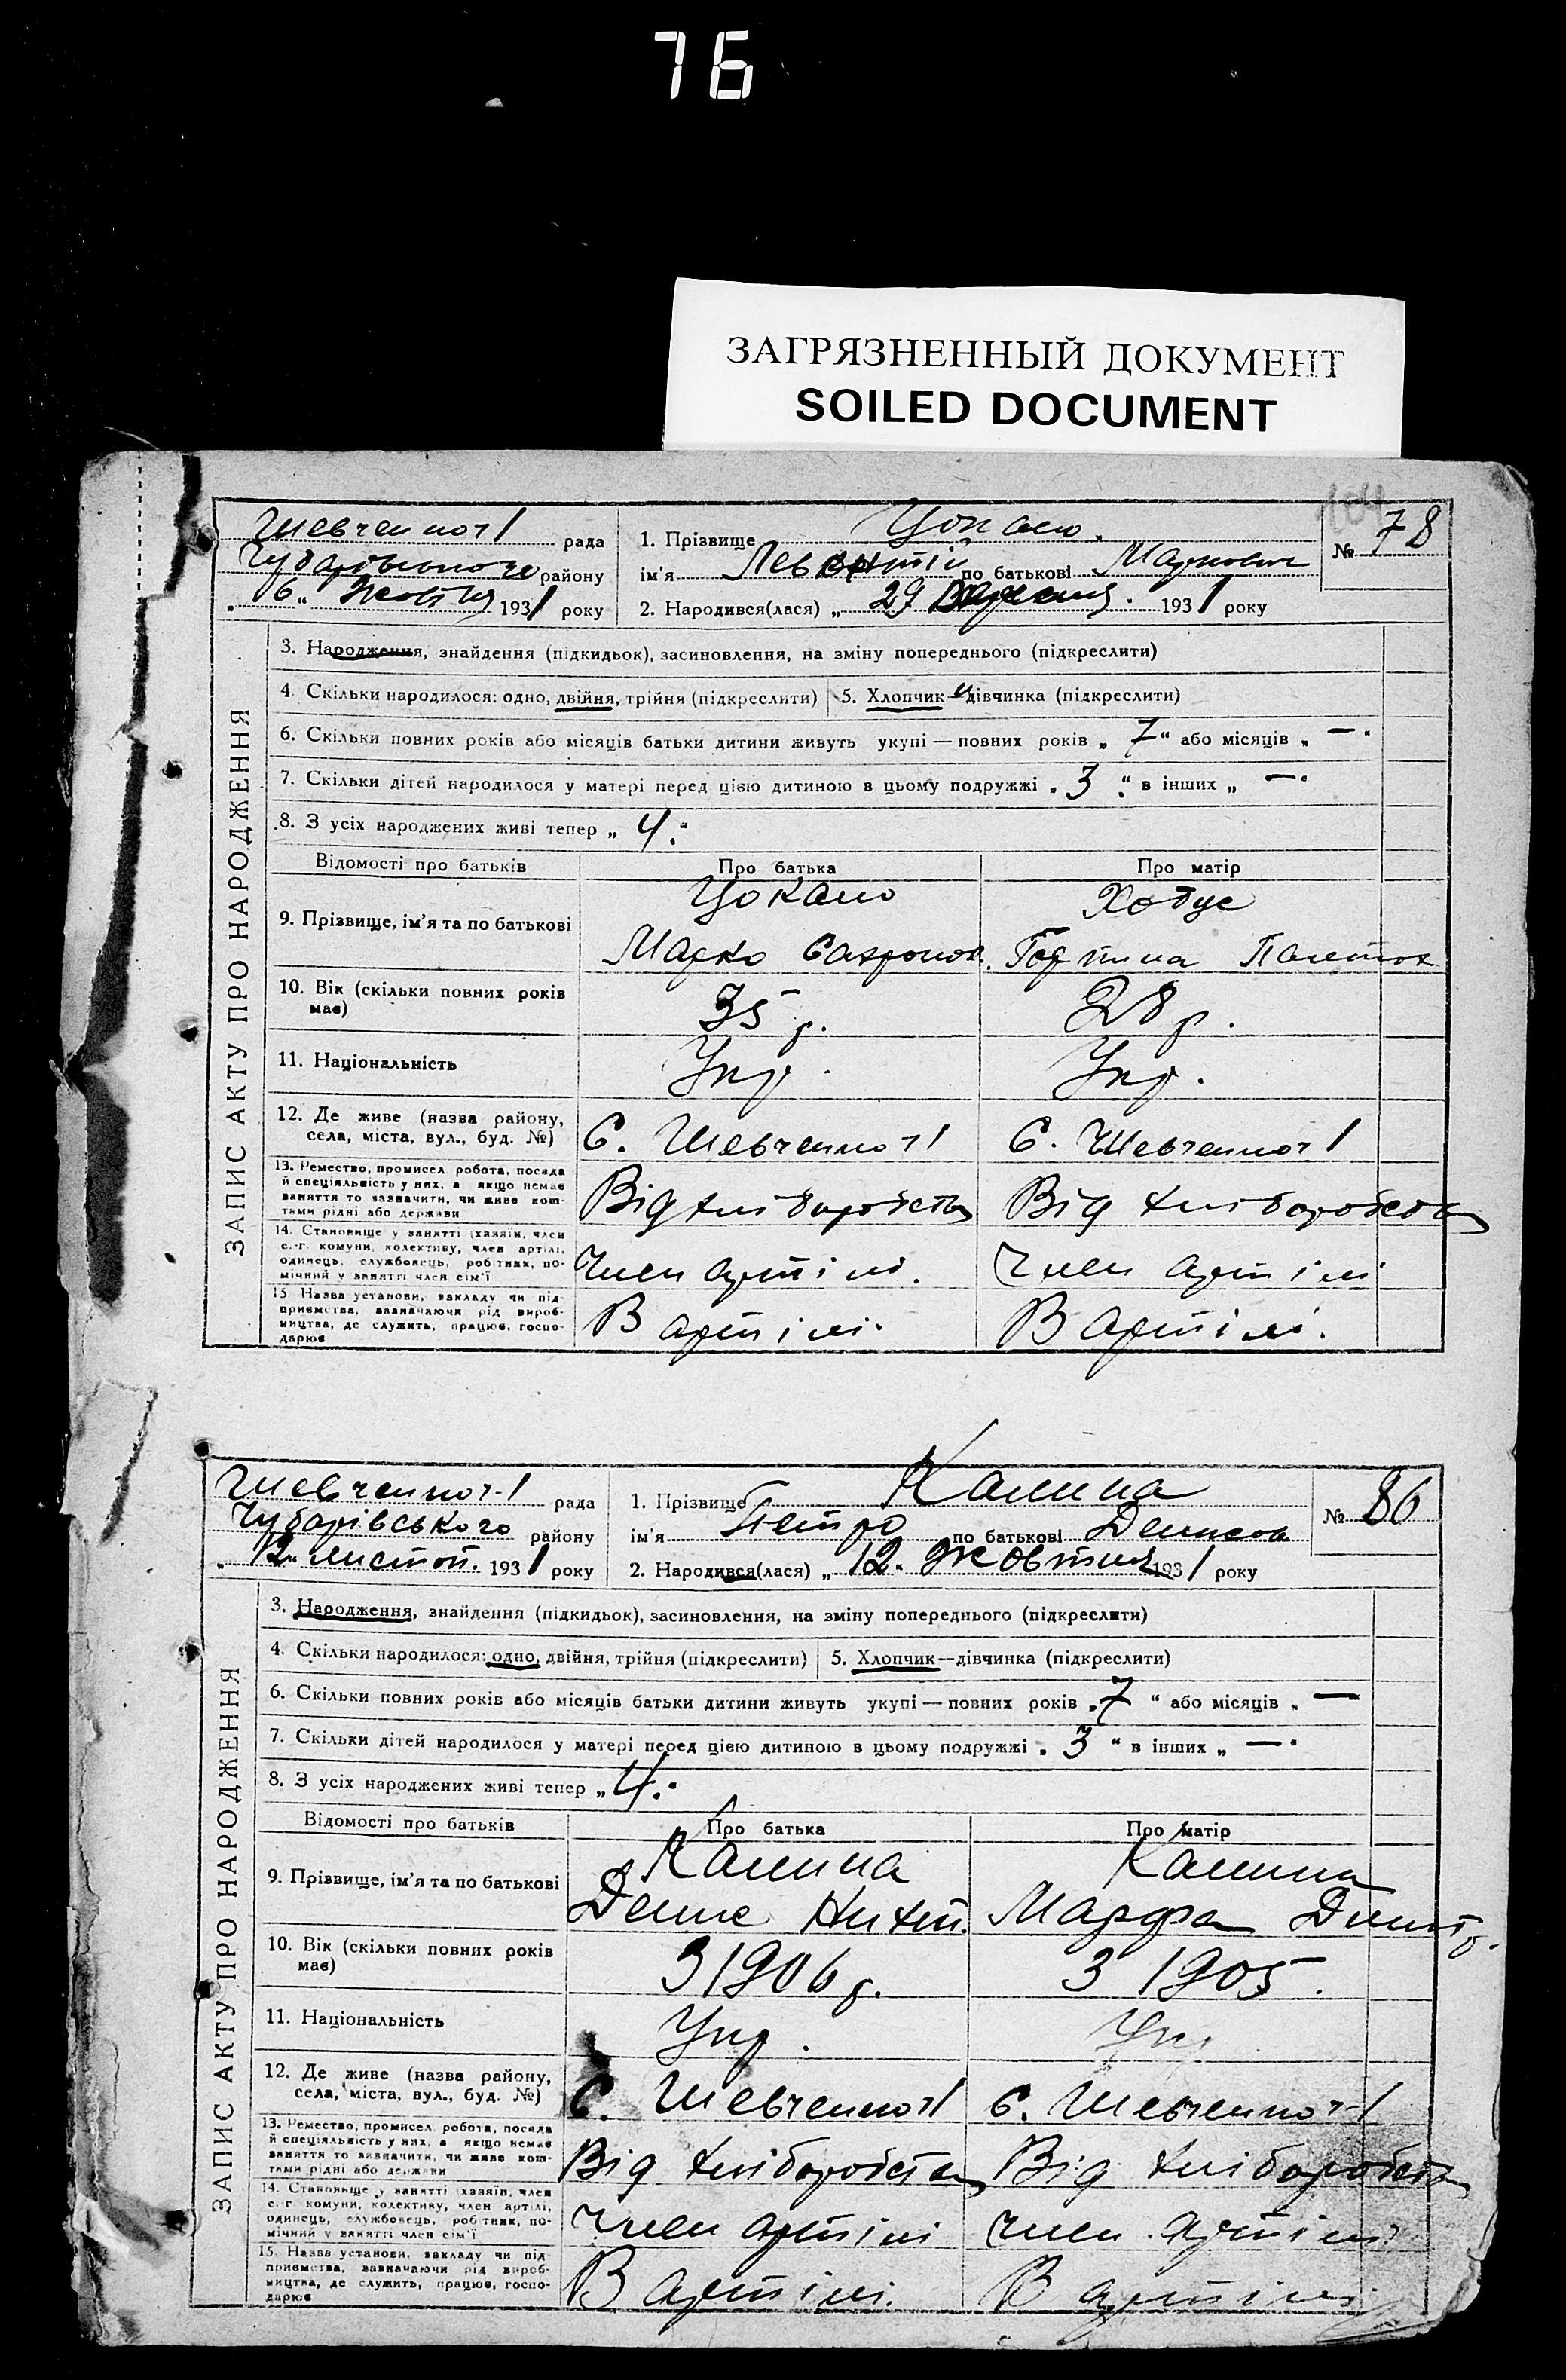 76
ЗАГРЯЗНЕННЫЙ ДОКУМЕНТ
SOILED DOCUMENT
104
Шевченког1 рада
Чубарівського району
„6“ Жовтня 1931 року
1. Прізвище Цокало.
ім'я Левонтій по батькові Маркович
2. Народився(лася) „29 Вересня. 1931 року
№ 78
ЗАПИС АКТУ ПРО НАРОДЖЕННЯ
3. Народження, знайдення (підкидьок), засиновлення, на зміну попереднього (підкреслити)
4. Скільки народилося: одно, двійня, трійня (підкреслити) 5. Хлопчик и дівчинка (підкреслити)
6. Скільки повних років або місяців батьки дитини живуть укупі — повних років „7“ або місяців „ —“
7. Скільки дітей народилося у матері перед цією дитиною в цьому подружжі „3“ в інших „ —“
8. З усіх народжених живі тепер „4“
Відомості про батьків Про батька Про матір
9. Прізвище, ім'я та по батькові
Цокало
Марко
Палеток
10. Вік (скільки повних років має) 35 р. 28 р.
11. Національність Укр. Укр.
12. Де живе (назва району, села, міста, вул., буд. №) С. Шевченког1 С. Шевченког1
13. Ремество, промисел робота, посада й спеціяльність у них, а якщо немає заняття то зазначити, чи живе коштами рідні або держави
Від хліборобства Від хліборобства
14. Становище у занятті (хазяїн, член с.-г. комуни, колективу, член артілі, одинець, службовець, робітник, помічний у занятті член сім'ї
Член артілі. Член артілі
15. Назва установи, закладу чи підприємства, зазначаючи рід виробництва, де служить, працює, господарює
В артілі. В артілі.
Шевченког-1 рада
Чубарівського району
„12“ листоп. 1931 року
1. Прізвище Калина
ім'я Петро по батькові Денисов
2. Народився(лася) „12“ Жовтня 1931 року
№ 86
ЗАПИС АКТУ ПРО НАРОДЖЕННЯ
3. Народження, знайдення (підкидьок), засиновлення, на зміну попереднього (підкреслити)
4. Скільки народилося: одно, двійня, трійня (підкреслити) 5. Хлопчик—дівчинка (підкреслити)
6. Скільки повних років або місяців батьки дитини живуть укупі — повних років „7“ або місяців „ —
7. Скільки дітей народилося у матері перед цією дитиною в цьому подружжі „3“ в інших „ —“
8. З усіх народжених живі тепер „4“
Відомості про батьків Про батька Про матір
9. Прізвище, ім'я та по батькові
Калина Калина
Денис Марфа Дмитр.
10. Вік (скільки повних років має) З 1906 р. З 1905.
11. Національність Укр. Укр
12. Де живе (назва району, села, міста, вул., буд. №) С. Шевченког1 С. Шевченког-1
13. Ремество, промисел робота, посада й спеціяльність у них, а якщо немає заняття то зазначити, чи живе коштами рідні або держави
Від хліборобства Від хліборобства
14. Становище у занятті (хазяїн, член с.-г. комуни, колективу, член артілі, одинець, службовець, робітник, помічний у занятті член сім'ї
Член артілі Член артілі
15. Назва установи, закладу чи підприємства, зазначаючи рід виробництва, де служить, працює, господарює
В артілі. В артілі